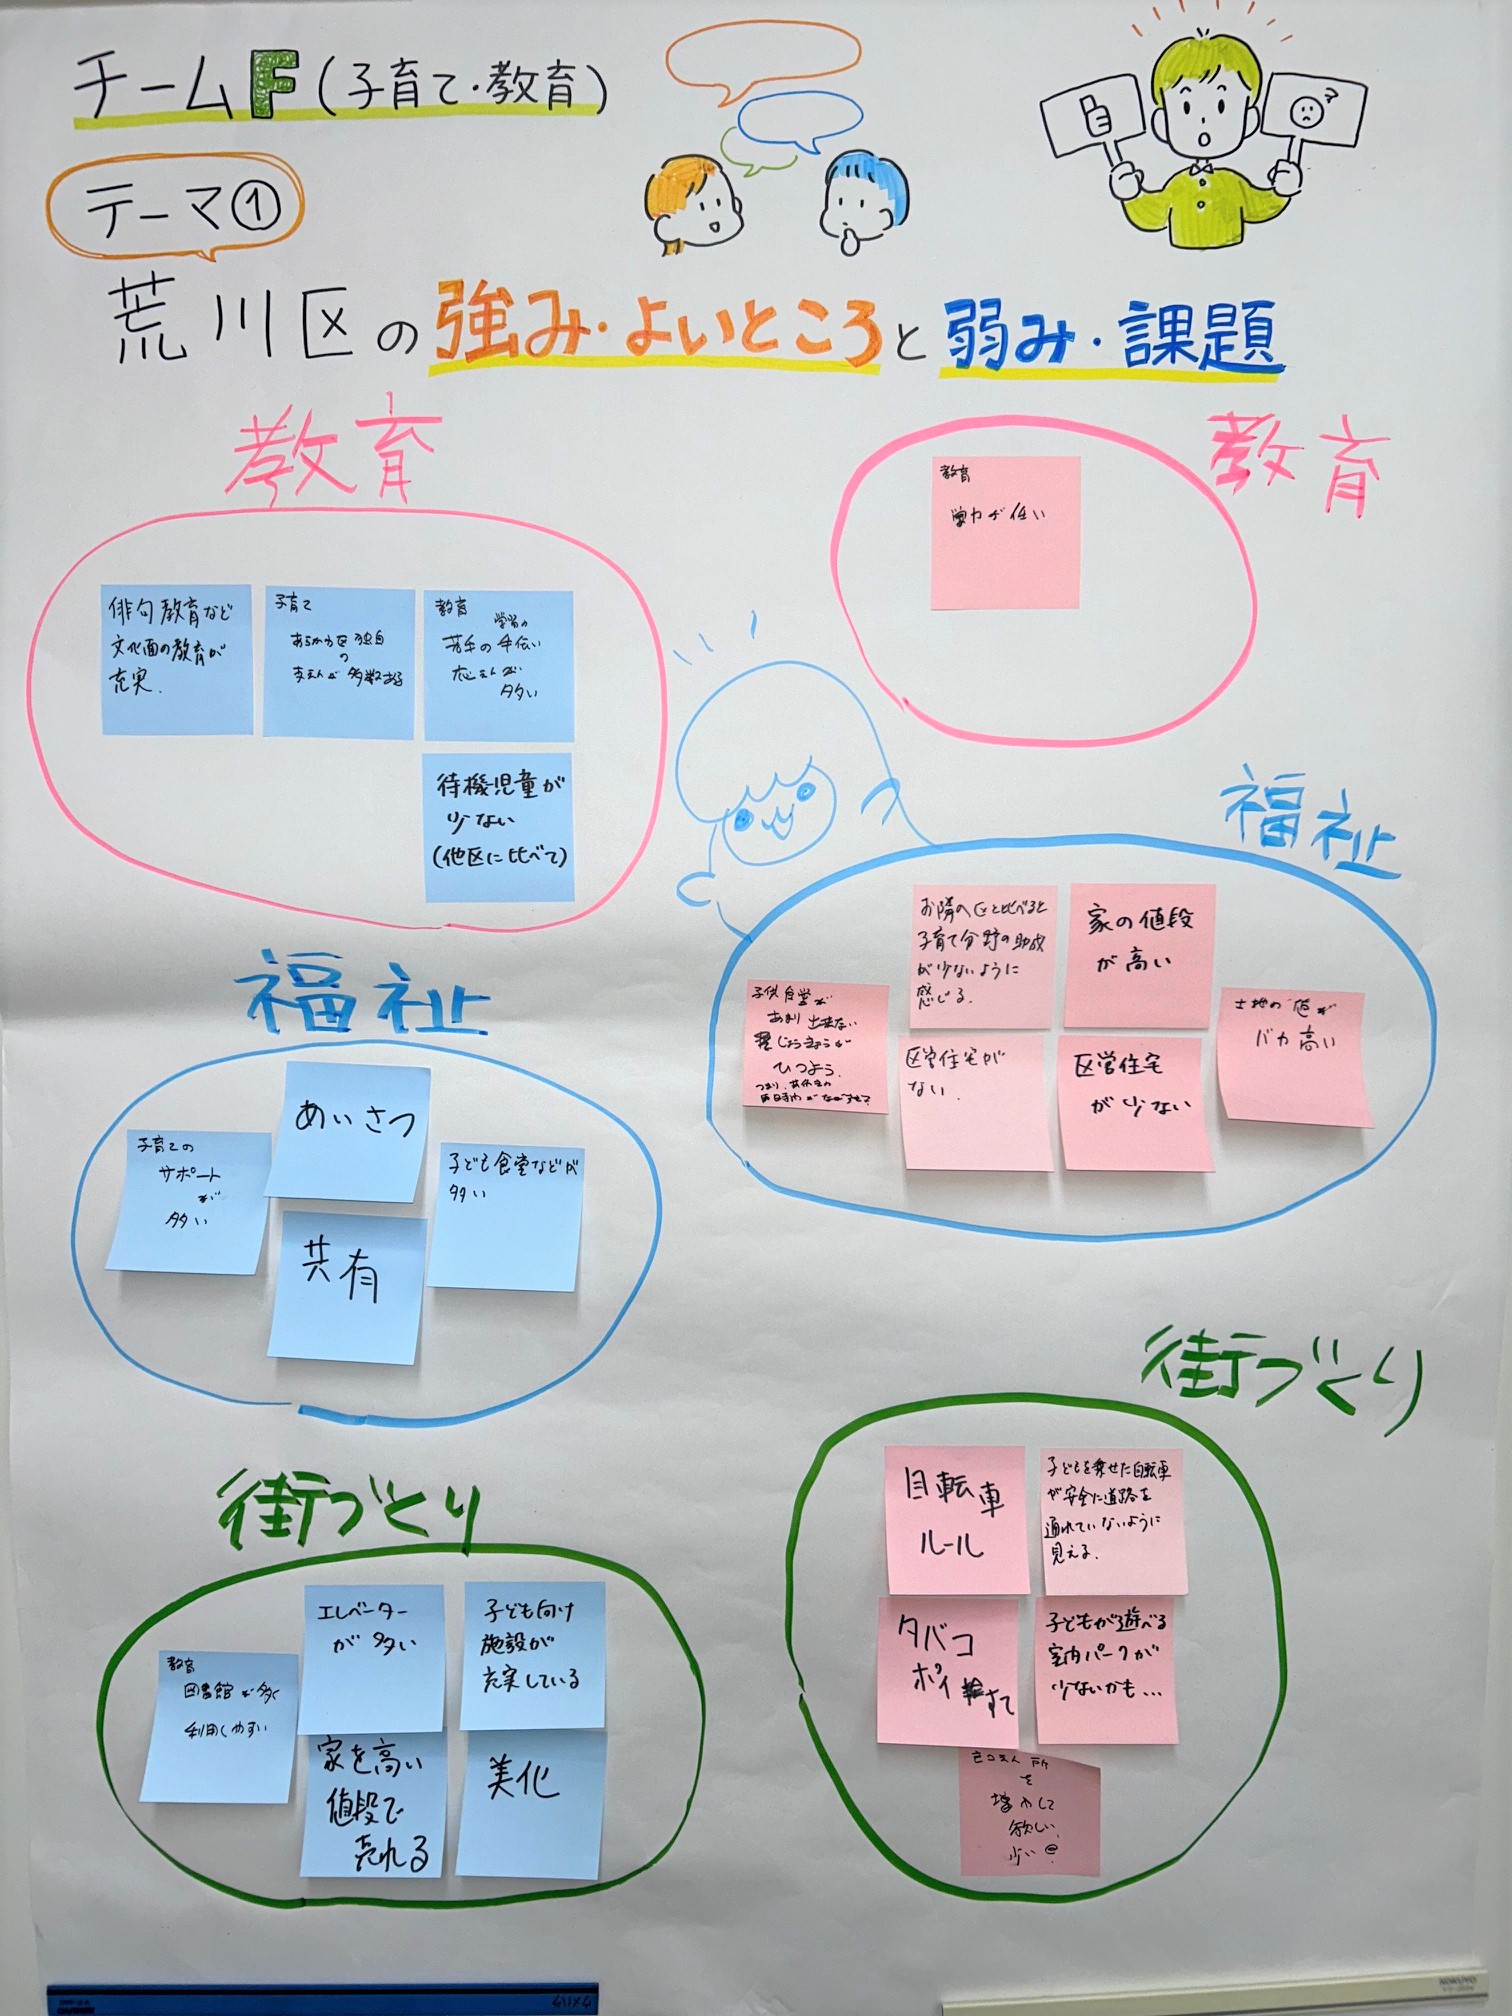 チームF(子育て・教育)
テーマ①
荒川区の強み・よいところと弱み・課題
教育
俳句教育など
文化面の教育が
充実.
子育て
あらかわ区独自
の
支えんが多数ある
教育
学習の
苦手の手伝い
応えんが
多い
待機児童が
少ない
(他区に比べて)
福祉
子育ての
サポート
が
多い
あいさつ
共有
子ども食堂などが
多い
街づくり
教育
図書館が多く
利用しやすい
エレベーター
が多い
家を高い
値段で
売れる
子ども向け
施設が
充実している
美化
教育
教育
学力が低い
福祉
子供食堂が
あまり出来ない
じょうきょうが
ひつよう.
つまり、
お隣の区と比べると
子育て分野の助成
が少ないように
感じる.
家の値段
が高い
区営住宅が
ない.
区営住宅
が少ない
土地の値が
バカ高い
街づくり
自転車
ルール
子どもを乗せた自転車
が安全に道路を
通れていないように
見える.
タバコ
ポイ捨て
子どもが遊べる
室内パークが
少ないかも…
所
を
増やして
欲しい
少い
KOKUYO